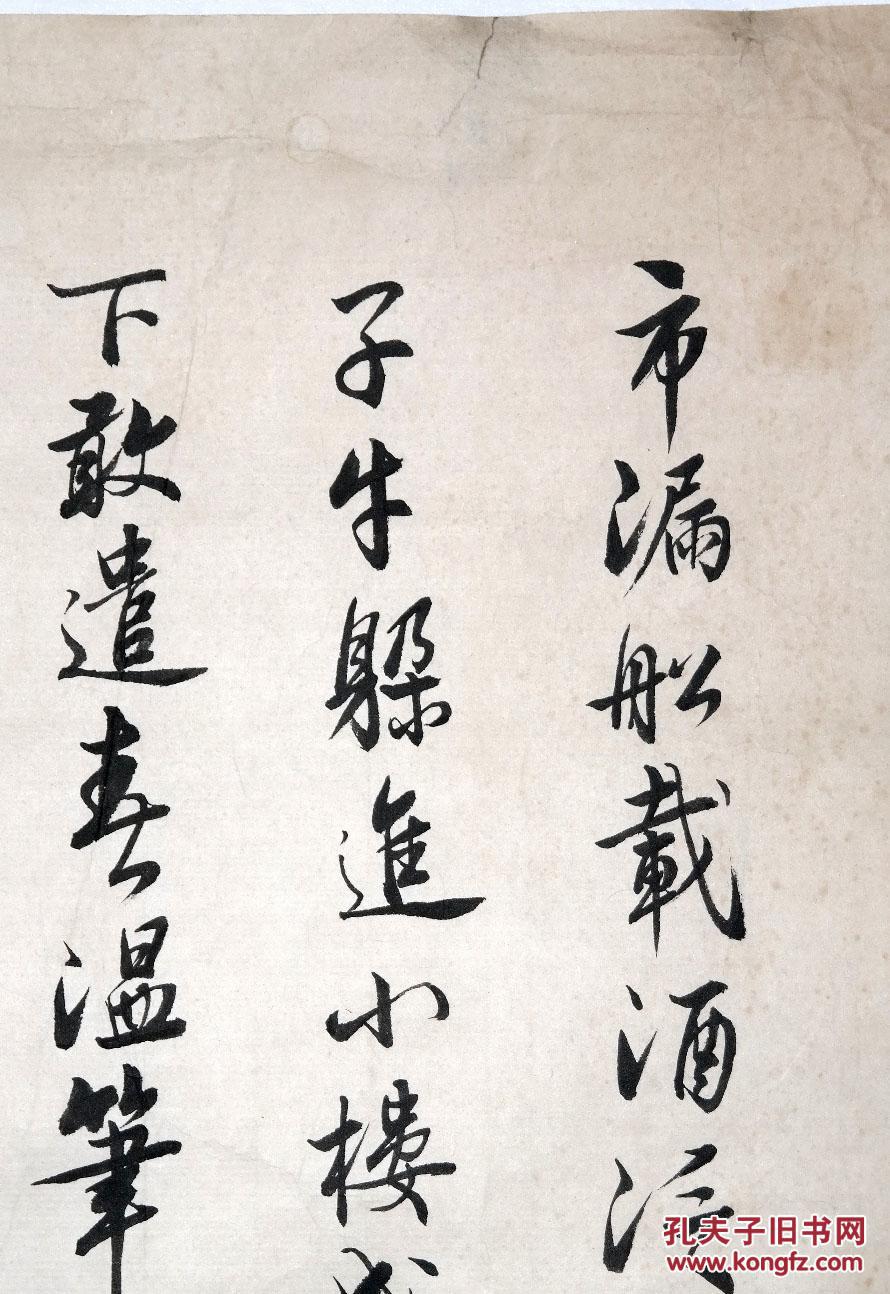 市漏船載酒泛
子牛躲進小樓成
下敢遣春温筆
孔夫子旧书网
www.kongfz.com